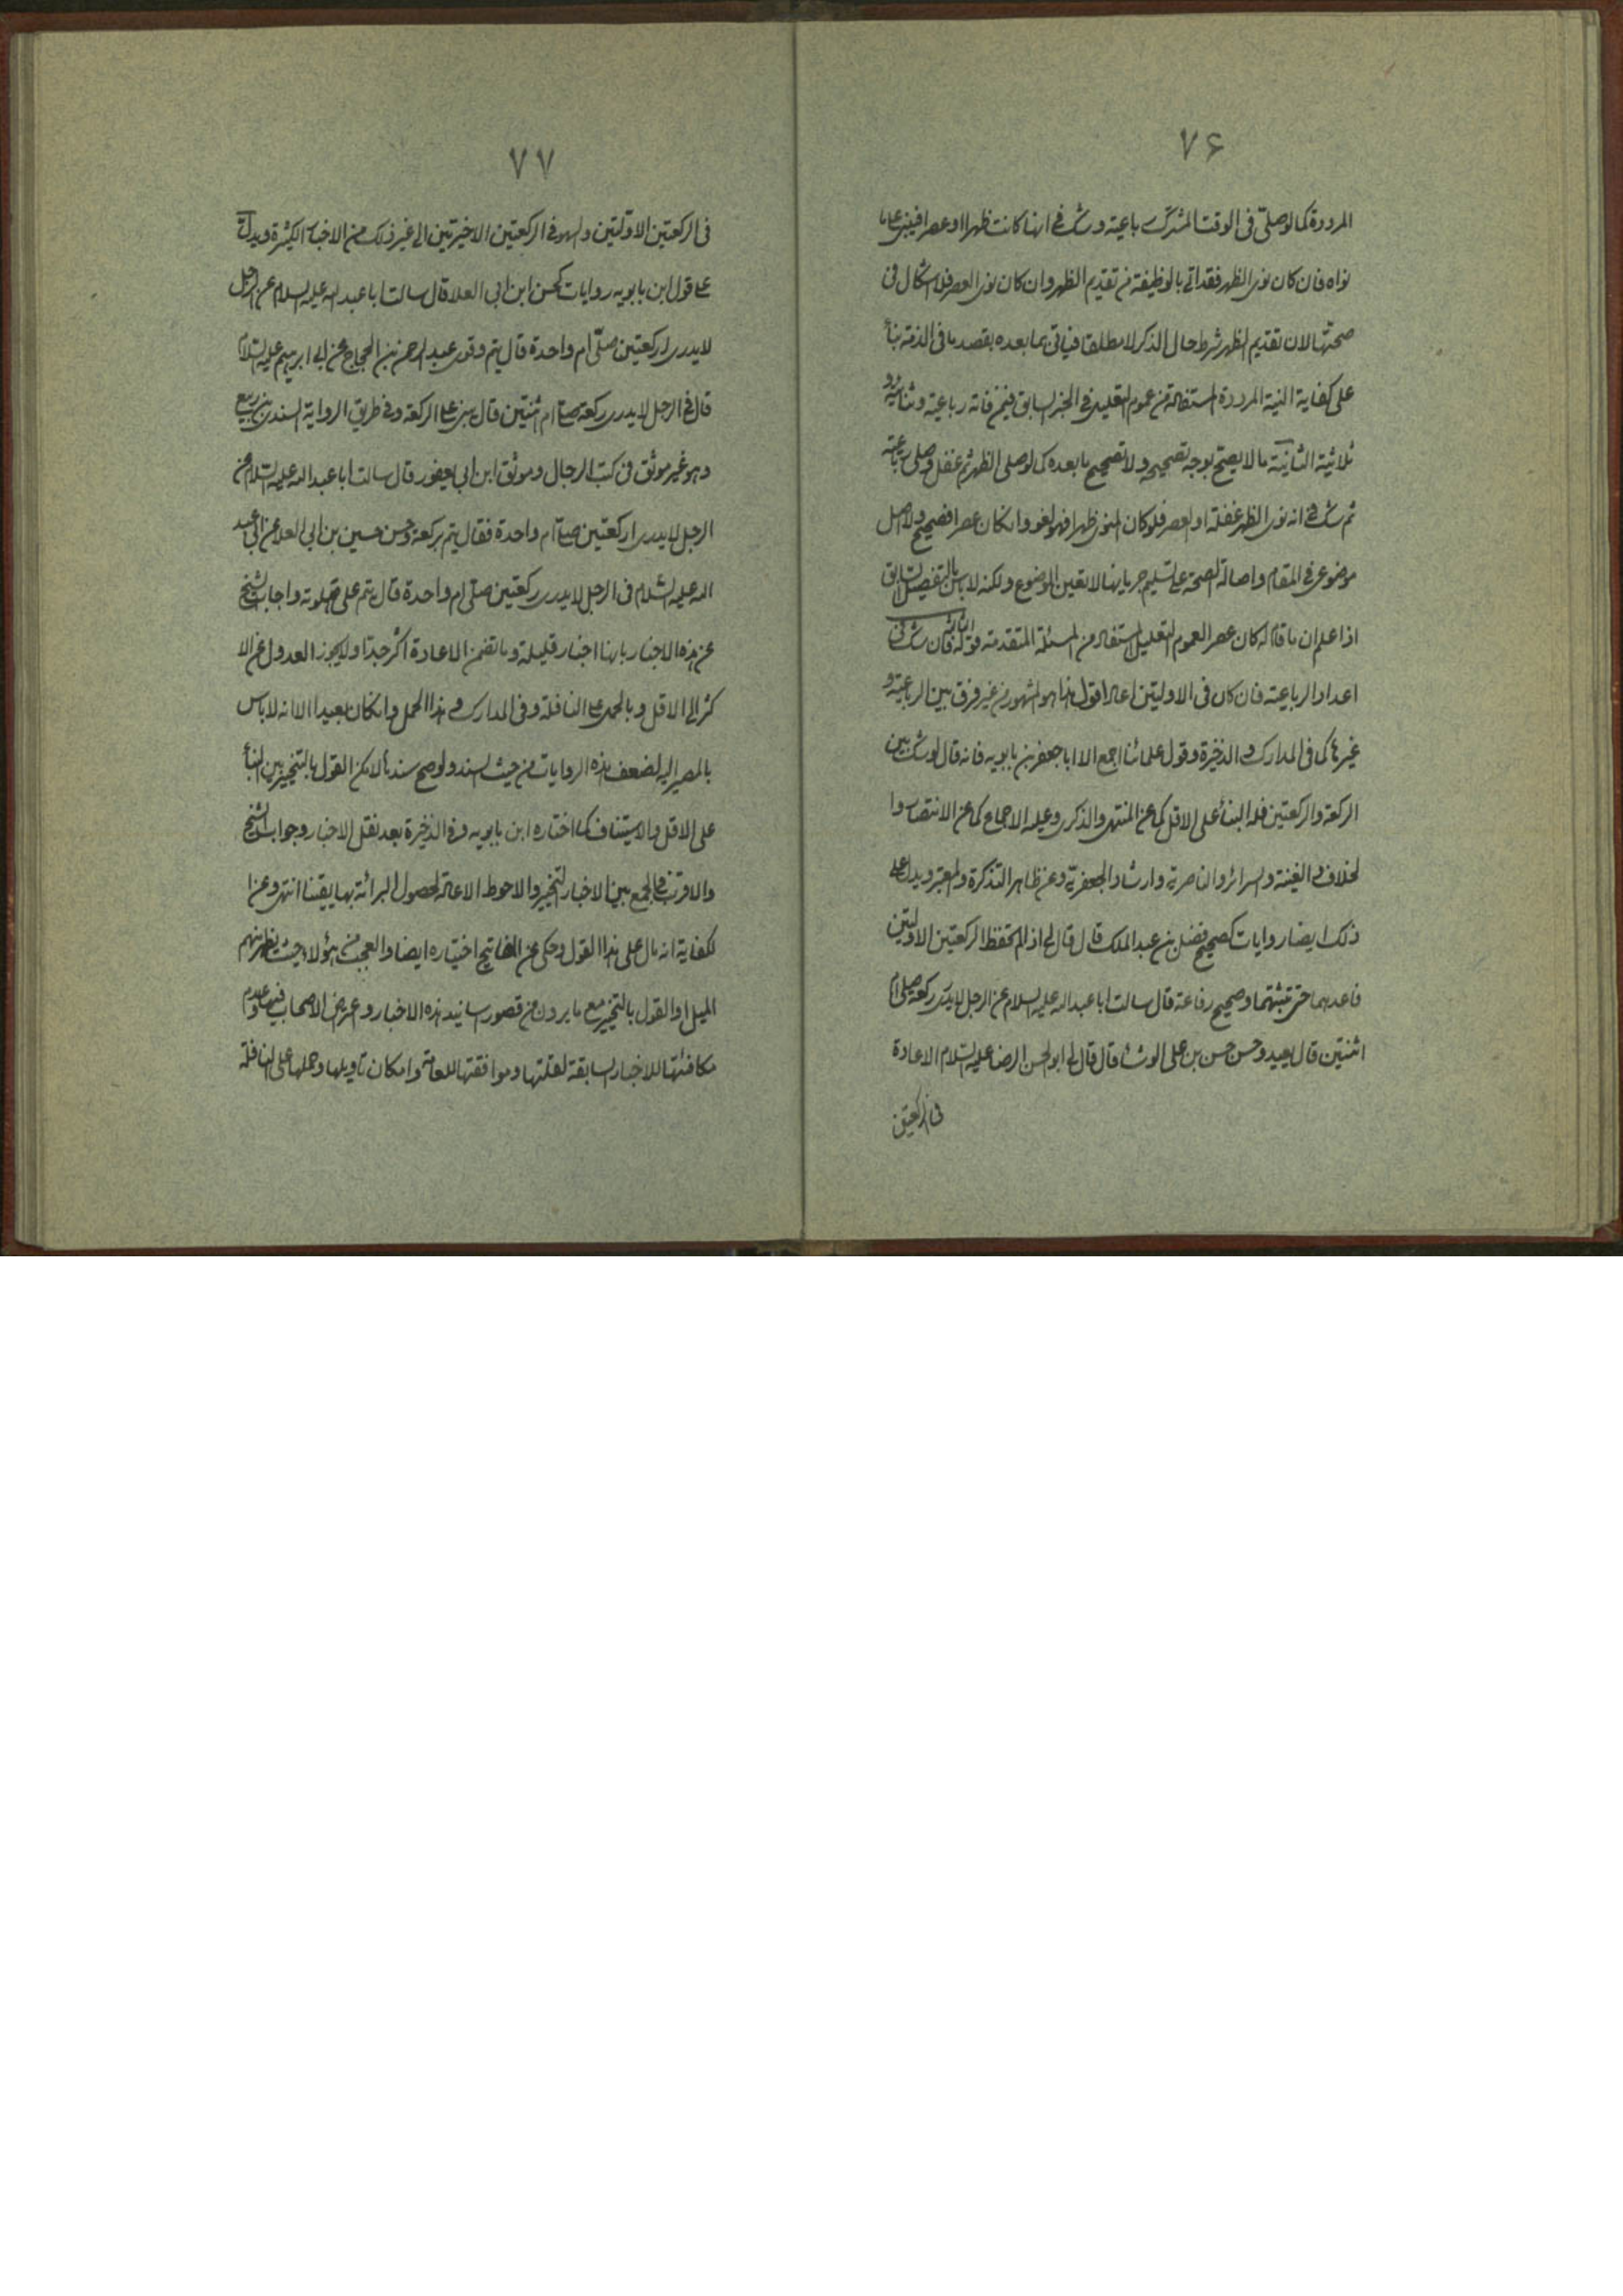 ۷۶
المرددة كما لو صلى فى الوقت المشترك رباعية و شك فى انها كانت ظهرا او عصرا فيبنى على ما
نواه فان كان نوى الظهر فقد اتى بالوظيفة من تقديم الظهر وان كان نوى العصر فلا اشكال فى
صحتها لان تقديم الظهر شرط حال الذكر لا مطلقا فياتى بما بعده بقصد ما فى الذمة بناء
على كفاية النية المرددة المستفادة من عموم التعليل فى الخبر السابق فيمن فاتة رباعية و ثنائية و
ثلاثية الثانية ما لا يصح بوجه تصحيحه ولا تصحيح ما بعده كما لو صلى الظهر ثم غفل و صلى رباعية
ثم شك فى انه نوى الظهر غفلة او العصر فلو كان المنوى ظهرا فهو لغو وانكان عصرا فصحيح ولا اصل
موضوعى فى المقام واصالة الصحة على تسليم جريانها لا تعين الموضوع ولكنه لا باس بالتفصيل السابق
اذا علم ان ما قام له كان عصر العموم التعليل المستفاد من المسئلة المتقدمة الثالثة قوله فان شك فى
اعداد الرباعية فان كان فى الاولتين اعاد اقول هذا هو المشهور من غير فرق بين الرباعية و
غيرها كما فى المدارك و الذخيرة وقول علمائنا اجمع الا ابا جعفر بن بابويه فانه قال لو شك بين
الركعة والركعتين فله البناء على الاقل كما عن المنتهى والذكرى وعليه الاجماع كما عن الانتصار وا
لخلاف و الغنية و السرائر والناصرية وارشاد الجعفرية وعن ظاهر التذكرة و المعتبر ويدل على
ذلك ايضا روايات كصحيح فضل بن عبد الملك قال قال لى اذا لم تحفظ الركعتين الاولتين
فاعدهما حتى تثبتهما وصحيح رفاعة قال سالت ابا عبد الله عليه السلام عن الرجل لا يدرى ركعة صلى ام
اثنتين قال يعيد وحسن حسن بن على الوشا قال قال لى ابو الحسن الرضا عليه السلام الاعادة
فى الركعتين
۷۷
فى الركعتين الاولتين والسهو فى الركعتين الاخيرتين الى غير ذلك من الاخبار الكثيرة و يدل
على قول ابن بابويه روايات كحسن ابن ابى العلا قال سالت ابا عبد الله عليه السلام عن الرجل
لا يدرى اركعتين صلى ام واحدة قال يتم وقوى عبد الرحمن بن الحجاج عن ابى ابراهيم عليه السلام
قال فى الرجل لا يدرى ركعة صلى ام ثنتين قال يبنى على الركعة وفى طريق الرواية السندى بن ربيع
وهو غير موثق فى كتب الرجال وموثق ابن ابى يعفور قال سالت ابا عبد الله عليه السلام عن
الرجل لا يدرى اركعتين صلى ام واحدة فقال يتم بركعة وحسن حسين بن ابى العلا عن ابى عبد
الله عليه السلام فى الرجل لا يدرى ركعتين صلى ام واحدة قال يتم على صلوته واجاب الشيخ
عن هذه الاخبار بانها اخبار قليلة وما تضمن الاعادة اكثر جدا ولا يجوز العدول عن الا
كثر الى الاقل وبالحمل على النافلة وفى المدارك و هذا الحمل وانكان بعيدا الا انه لا باس
بالمصير اليه لضعف هذه الروايات من حيث السند ولو صح سندها لامكن القول بالتخيير بين البناء
على الاقل والاستيناف كما اختاره ابن بابويه وفى الذخيرة بعد نقل الاخبار وجواب الشيخ
والاقرب فى الجمع بين الاخبار التخيير والاحوط الاعادة لحصول البرائة بها يقينا انتهى وعن ا
لكفاية انه مال على هذا القول وحكى عن المفاتيح اختياره ايضا والعجب من هؤلاء حيث يظهر منهم
الميل او القول بالتخيير مع ما يرون من قصور اسانيد هذه الاخبار و اعراض الاصحاب فيها وعدم
مكافئتها للاخبار السابقة لقلتها و موافقتها للعامة وامكان تاويلها و حملها على النافلة